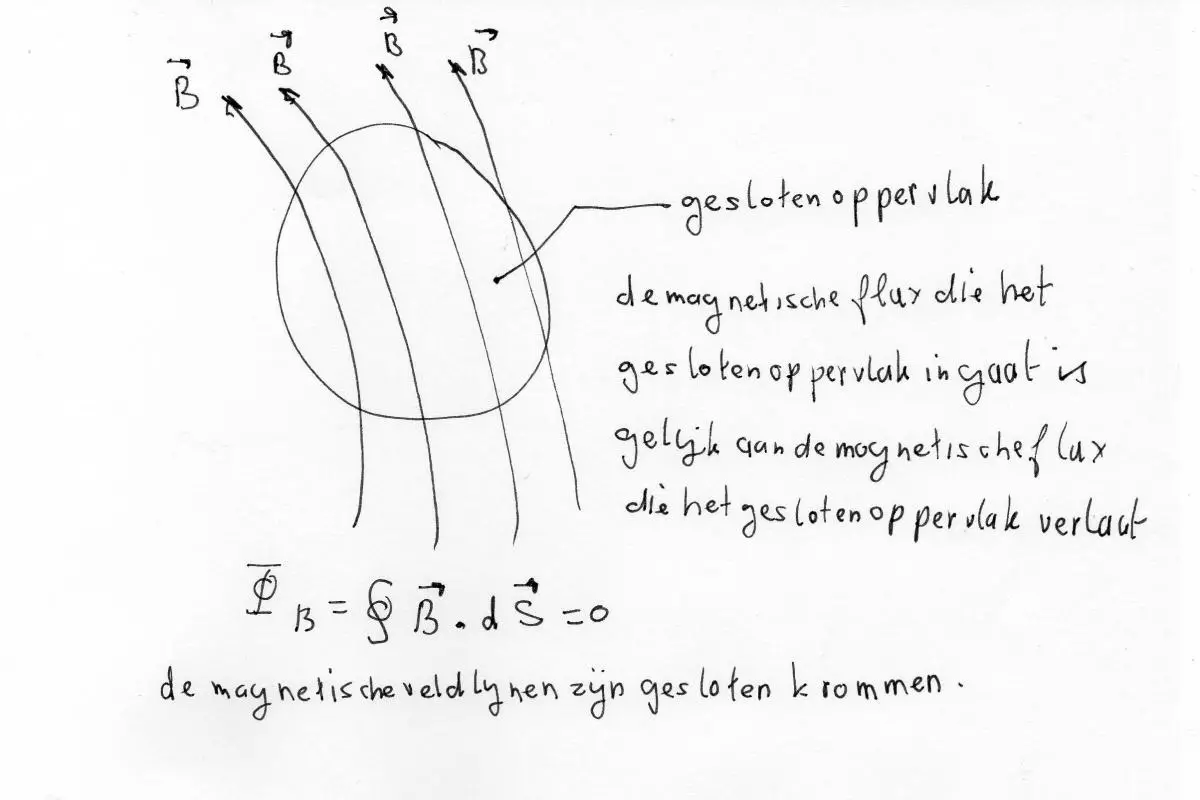 B⃗ B⃗ B⃗ B⃗
gesloten oppervlak
de magnetische flux die het
gesloten oppervlak in gaat is
gelijk aan de magnetische flux
die het gesloten oppervlak verlaat
Φ_B = ∮ B⃗ . d S⃗ = 0
de magnetische veldlijnen zijn gesloten krommen.